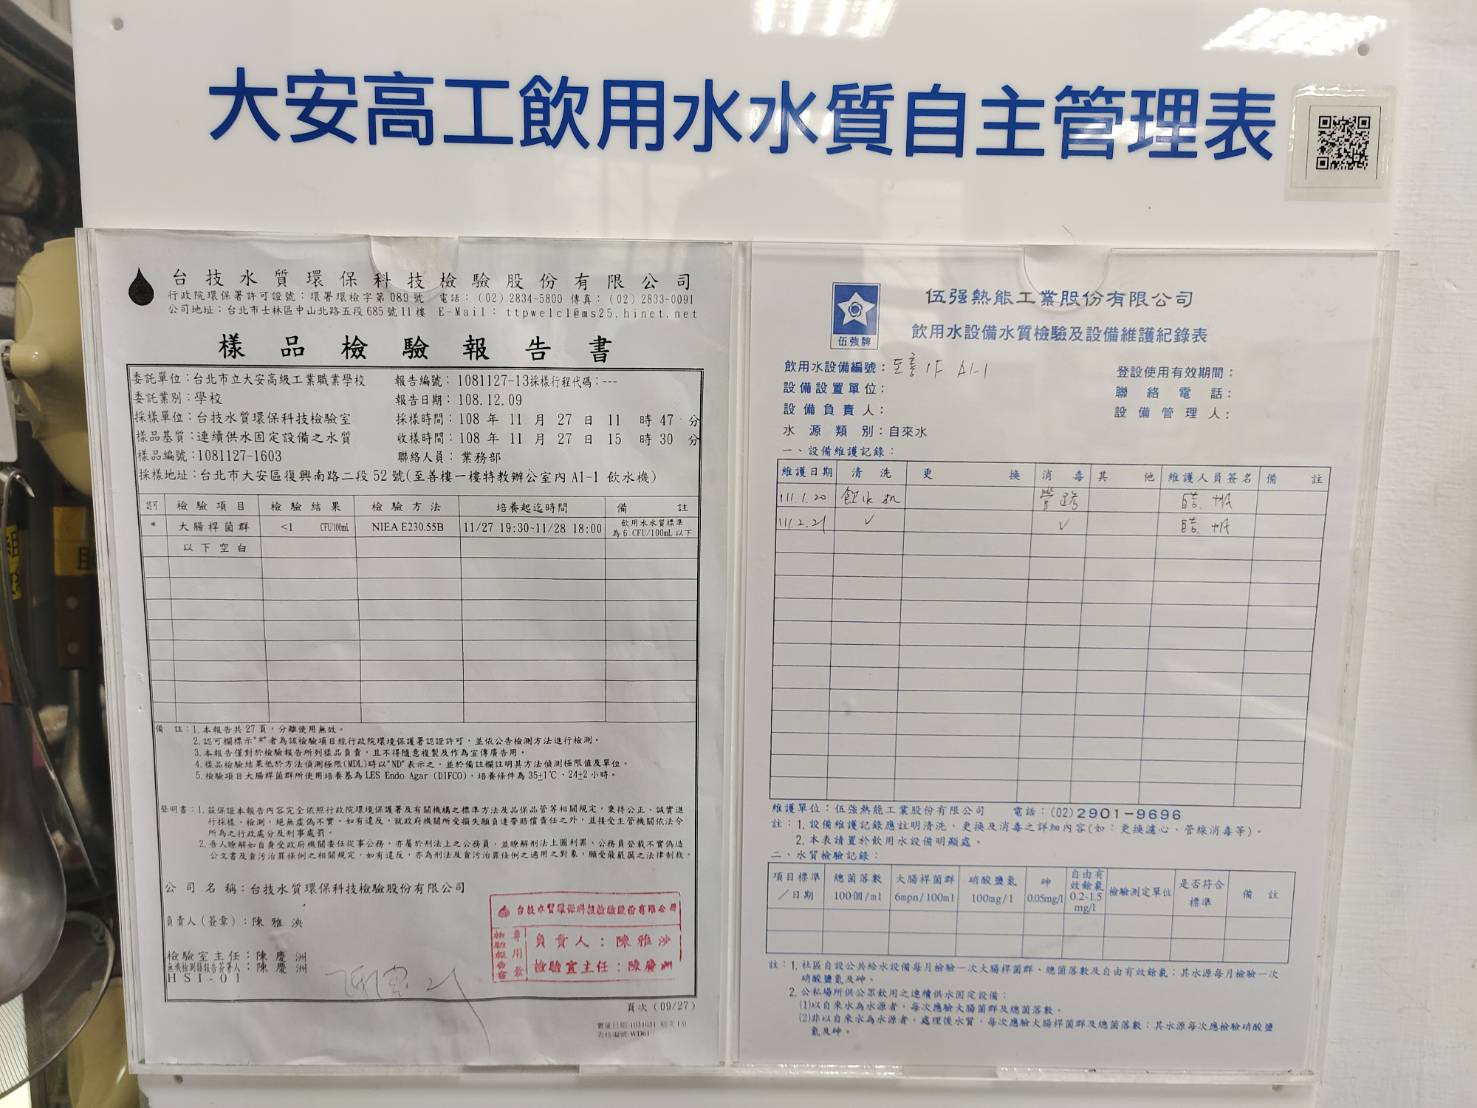 大安高工飲用水水質自主管理表
台技水質環保科技檢驗股份有限公司
行政院環保署許可證號：環署環檢字第089號 電話：(02)2834-5800 傳真：(02)2833-0091
公司地址：台北市士林區中山北路五段685號11樓 E-Mail：ttpwelcl@ms25.hinet.net
樣品檢驗報告書
委託單位：台北市立大安高級工業職業學校 報告編號：1081127-13採樣行程代碼：---
委託業別：學校 報告日期：108.12.09
採樣單位：台技水質環保科技檢驗室 採樣時間：108 年 11 月 27 日 11 時 47 分
樣品基質：連續供水固定設備之水質 收樣時間：108 年 11 月 27 日 15 時 30 分
樣品編號：1081127-1603 聯絡人員：業務部
採樣地址：台北市大安區復興南路二段 52 號(至善樓一樓特教辦公室內 A1-1 飲水機)
認可 檢驗項目 檢驗結果 檢驗方法 培養起迄時間 備註
* 大腸桿菌群 <1 CFU/100mL NIEA E230.55B 11/27 19:30~11/28 18:00 飲用水水質標準
為 6 CFU/100mL 以下
以下空白
備 註：1.本報告共27頁，分離使用無效。
2.認可欄標示"*"者為該檢驗項目經行政院環境保護署認證許可，並依公告檢測方法進行檢測。
3.本報告僅對於檢驗報告所列樣品負責，且不得隨意複製及作為宣傳廣告用。
4.樣品檢驗結果低於方法偵測極限(MDL)時以"ND"表示之，並於備註欄註明其方法偵測極限值及單位。
5.檢驗項目大腸桿菌群所使用培養基為 LES Endo Agar (DIFCO)，培養條件為 35±1℃、24±2 小時。
聲明書：1.茲保證本報告內容完全依照行政院環境保護署及有關機構之標準方法及品保品管等相關規定，秉持公正、誠實進
行採樣、檢測，絕無虛偽不實。如有違反，就政府機關所受損失願負連帶賠償責任之外，並接受主管機關依法令
所為之行政處分及刑事處罰。
2.吾人瞭解如自身受政府機關委任從事公務，亦屬於刑法上之公務員，並瞭解刑法上圖利罪、公務員登載不實偽造
公文書及貪污治罪條例之相關規定，如有違反，亦為刑法及貪污治罪條例之適用之對象，願受最嚴厲之法律制裁。
公司名稱：台技水質環保科技檢驗股份有限公司
負責人(簽章)：陳雅泱
檢驗室主任：陳慶洲
無機檢測類報告簽署人：陳慶洲
HSI-01
台技水質環保科技檢驗股份有限公司
檢驗報告專用章
負責人：陳雅泱
檢驗室主任：陳慶洲
頁次 (09/27)
伍強牌
伍强熱能工業股份有限公司
飲用水設備水質檢驗及設備維護紀錄表
飲用水設備編號： A1-1 登設使用有效期間：
設備設置單位： 聯絡電話：
設備負責人： 設備管理人：
水源類別：自來水
一、設備維護記錄：
維護日期 清洗 更換 消毒 其他 維護人員簽名 備註
111.1.20 飲水机 管路
111.2.21 ✓ ✓
維護單位：伍強熱能工業股份有限公司 電話：(02)2901-9696
註：1.設備維護記錄應註明清洗，更換及消毒之詳細內容(如：更換濾心、管線消毒等)。
2.本表請置於飲用水設備明顯處。
二、水質檢驗記錄：
項目標準／日期 總菌落數 100個/ml 大腸桿菌群 6mpn/100ml 硝酸鹽氮 100mg/l 砷 0.05mg/l 自由有效餘氯 0.2-1.5 mg/l 檢驗測定單位 是否符合標準 備註
註：1.社區自設公共給水設備每月檢驗一次大腸桿菌群、總菌落數及自由有效餘氯；其水源每月檢驗一次
硝酸鹽氮及砷。
2.公私場所供公眾飲用之連續供水固定設備：
(1)以自來水為水源者，每次應驗大腸菌群及總菌落數。
(2)非以自來水為水源者，處理後水質，每次應驗大腸桿菌群及總菌落數；其水源每次應檢驗硝酸鹽
氮及砷。